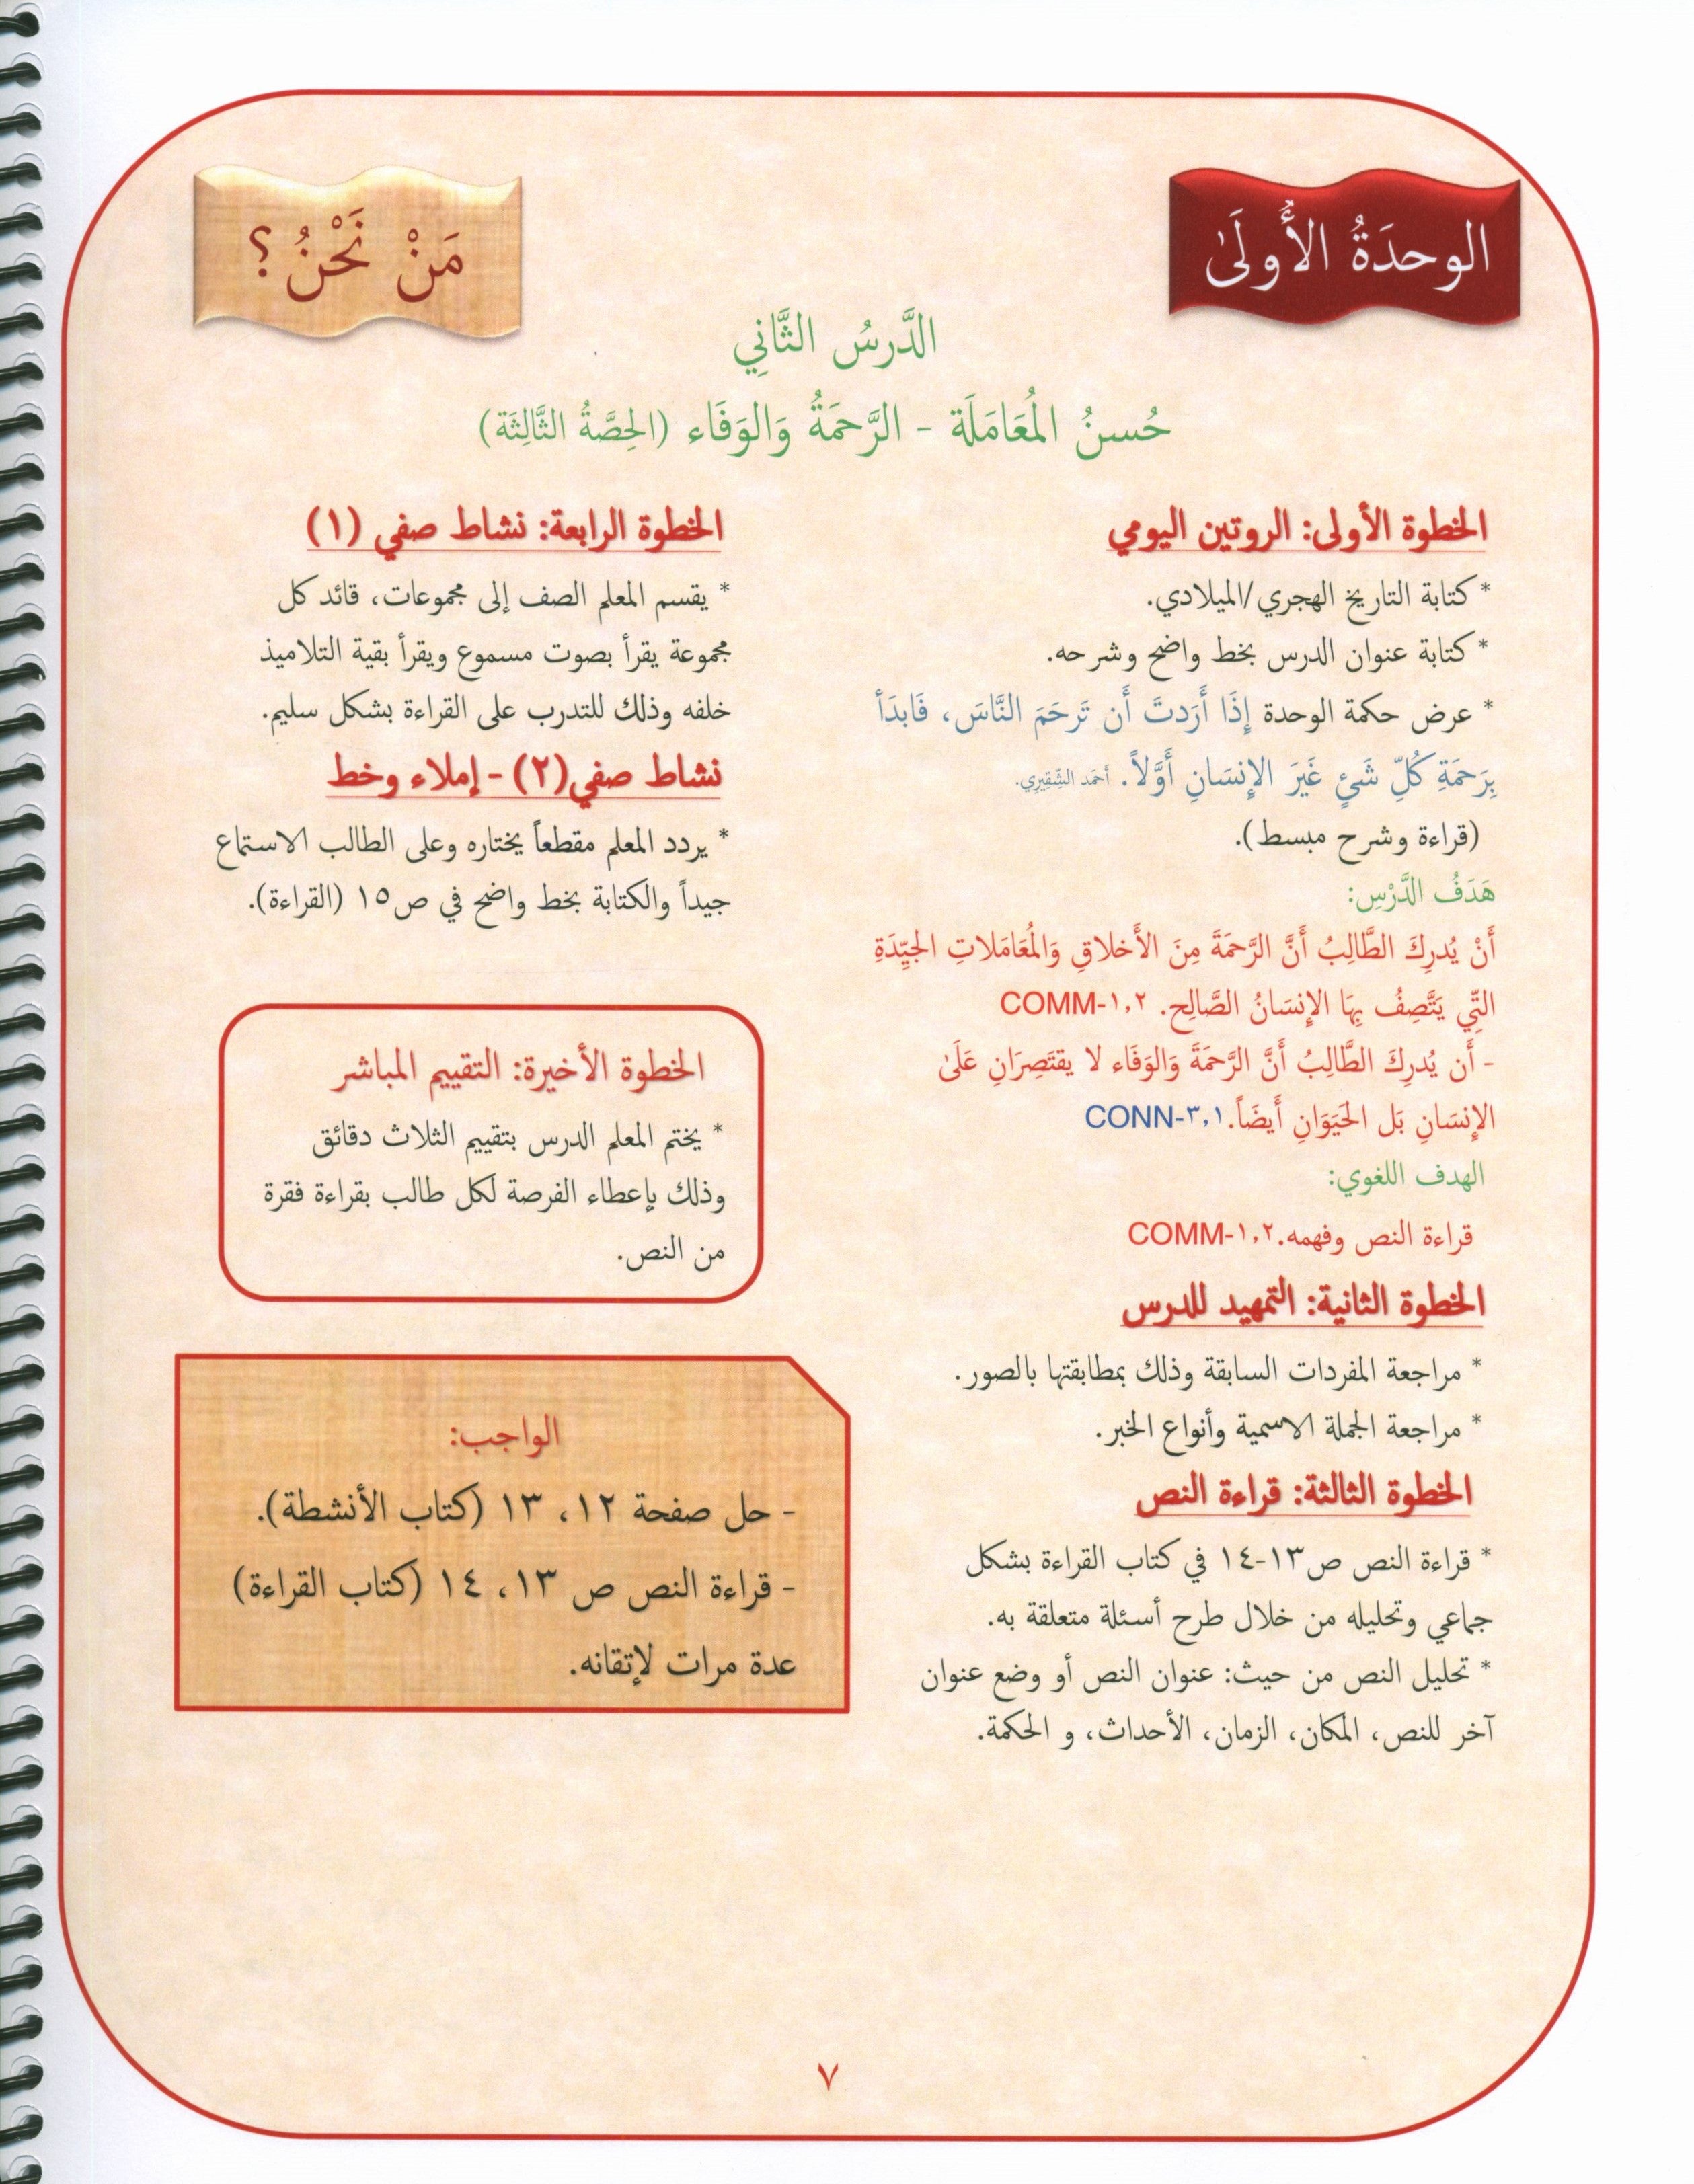 الوحدَةُ الأُولَىٰ
مَنْ نَحْنُ؟
الدَّرسُ الثَّانِي
حُسنُ المُعَامَلَة - الرَّحمَةُ وَالوَفَاء (الحِصَّةُ الثَّالِثَة)
الخطوة الأولى: الروتين اليومي
* كتابة التاريخ الهجري/الميلادي.
* كتابة عنوان الدرس بخط واضح وشرحه.
* عرض حكمة الوحدة إِذَا أَرَدتَ أَن تَرحَمَ النَّاسَ، فَابدَأ
بِرَحمَةِ كُلِّ شَئٍ غَيرَ الإِنسَانِ أَوَّلاً. أحمَد الشّقِيرِي.
(قراءة وشرح مبسط).
هَدَفُ الدَّرْسِ:
أَنْ يُدرِكَ الطَّالِبُ أَنَّ الرَّحمَةَ مِنَ الأَخلاقِ وَالمُعَامَلاتِ الجيِّدَةِ
التِّي يَتَّصِفُ بِهَا الإِنسَانُ الصَّالِح. COMM-١,٢
- أَن يُدرِكَ الطَّالِبُ أَنَّ الرَّحمَةَ وَالوَفَاء لا يقتَصِرَانِ عَلَىٰ
الإِنسَانِ بَل الحَيَوَانِ أَيضَاً. CONN-٣,١
الهدف اللغوي:
قراءة النص وفهمه. COMM-١,٢
الخطوة الثانية: التمهيد للدرس
* مراجعة المفردات السابقة وذلك بمطابقتها بالصور.
* مراجعة الجملة الاسمية وأنواع الخبر.
الخطوة الثالثة: قراءة النص
* قراءة النص ص١٣-١٤ في كتاب القراءة بشكل
جماعي وتحليله من خلال طرح أسئلة متعلقة به.
* تحليل النص من حيث: عنوان النص أو وضع عنوان
آخر للنص، المكان، الزمان، الأحداث، و الحكمة.
الخطوة الرابعة: نشاط صفي (١)
* يقسم المعلم الصف إلى مجموعات، قائد كل
مجموعة يقرأ بصوت مسموع ويقرأ بقية التلاميذ
خلفه وذلك للتدرب على القراءة بشكل سليم.
نشاط صفي(٢) - إملاء وخط
* يردد المعلم مقطعاً يختاره وعلى الطالب الاستماع
جيداً والكتابة بخط واضح في ص١٥ (القراءة).
الخطوة الأخيرة: التقييم المباشر
* يختم المعلم الدرس بتقييم الثلاث دقائق
وذلك بإعطاء الفرصة لكل طالب بقراءة فقرة
من النص.
الواجب:
- حل صفحة ١٢، ١٣ (كتاب الأنشطة).
- قراءة النص ص ١٣، ١٤ (كتاب القراءة)
عدة مرات لإتقانه.
٧